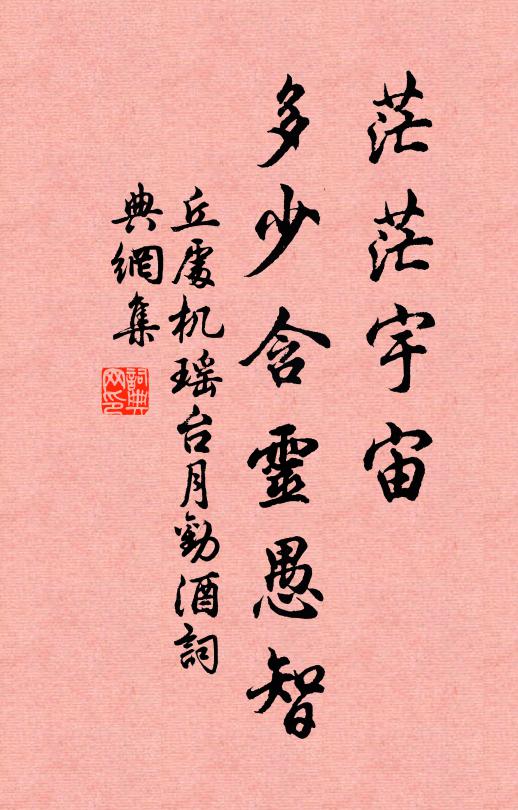 茫茫宇宙
多少含靈愚智
丘處机瑤台月勸酒詞
典網集
詞典網印